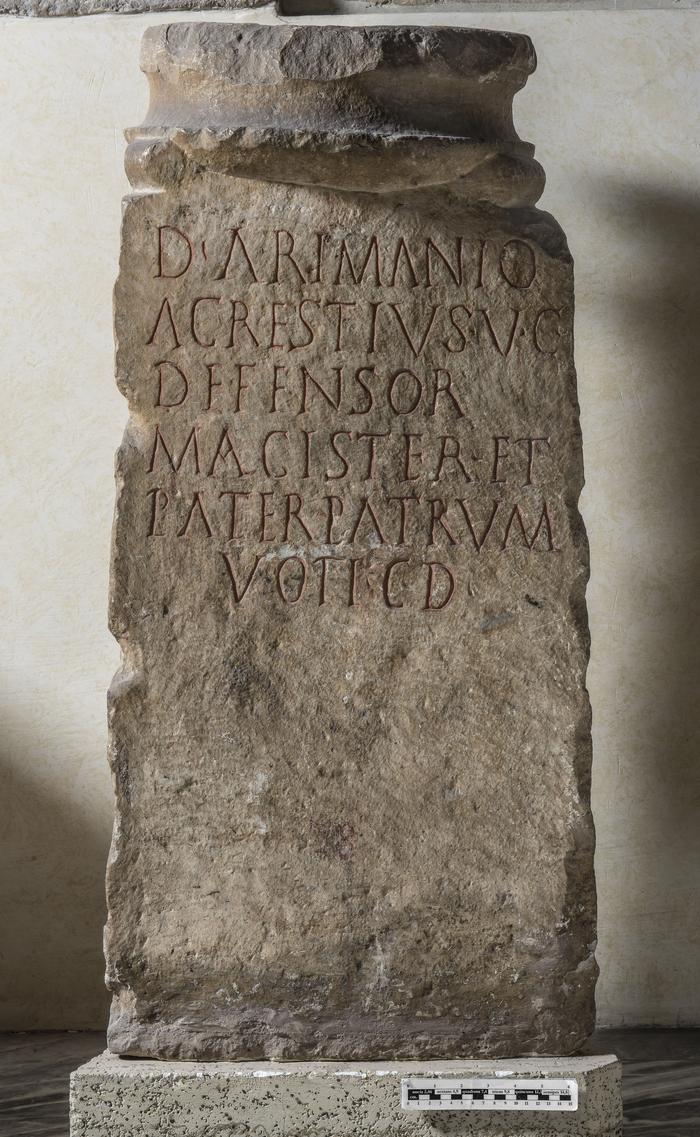 D · ARIMANIO
AGRESTIVS · V · C
DEFENSOR
MAGISTER · ET
PATER PATRVM
VOTI · C · D